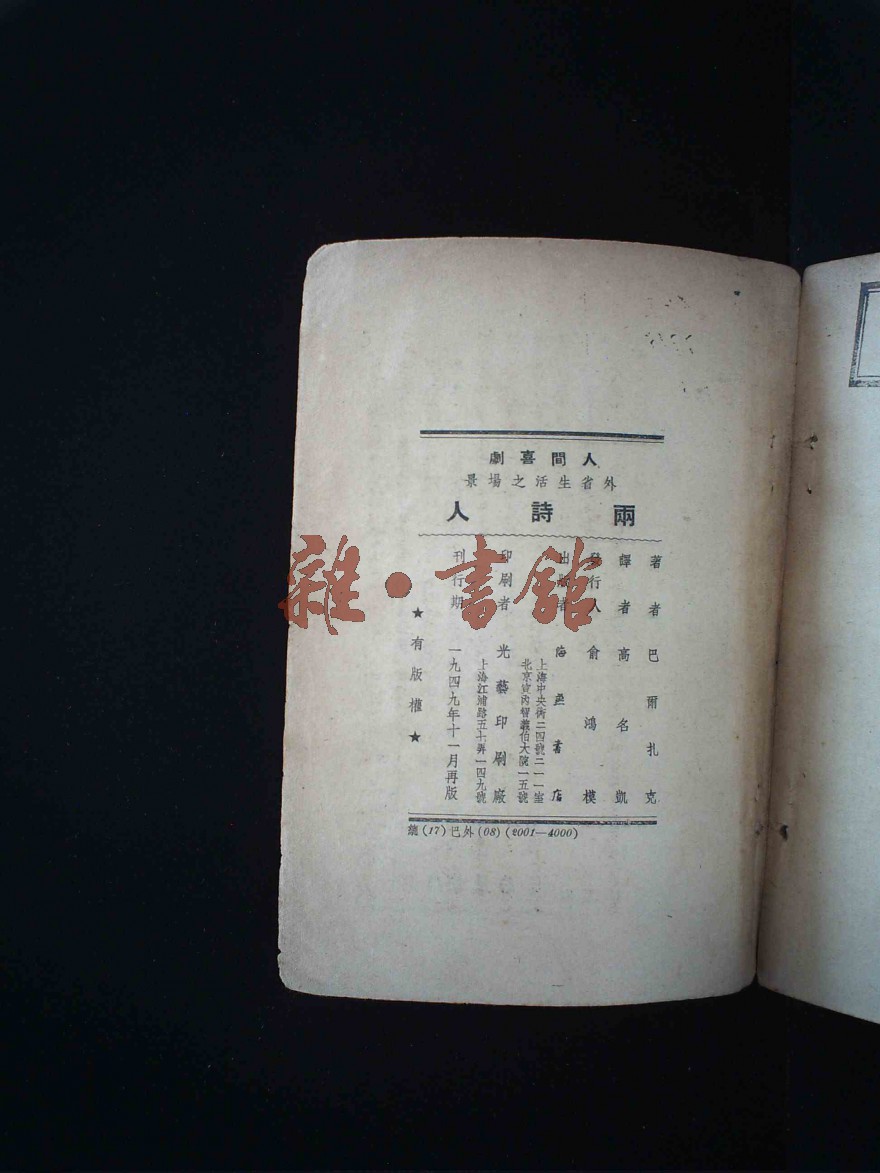 人間喜劇
外省生活之場景
兩詩人
著者 巴爾扎克
譯者 高名凱
發行人 俞鴻模
出版者 海燕書店
上海中央街二四號二一一室
北京宣內智義伯大院一五號
印刷者 光藝印刷廠
上海紅浦路五七弄一四九號
刊行期 一九四九年十一月再版
★有版權★
總(17)巴外(08)(2001—4000)
雜·書館